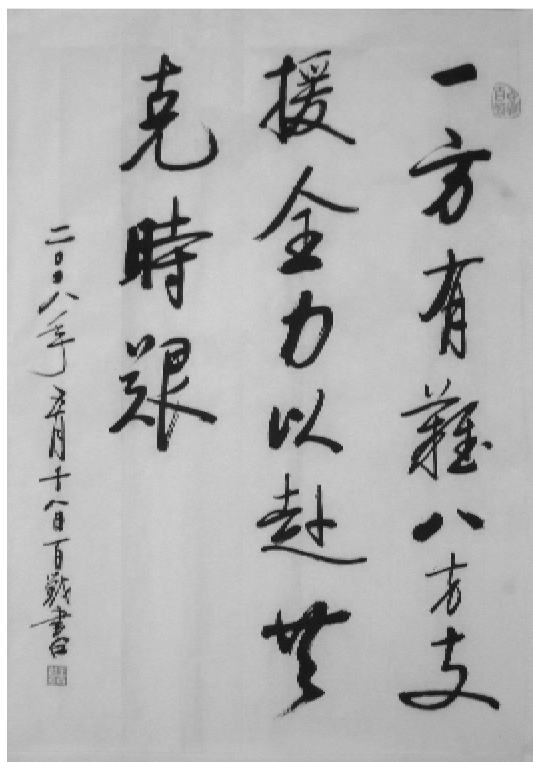 一方有難八方支
援全力以赴共
克時艱
二〇〇八年五月十八日百戰書